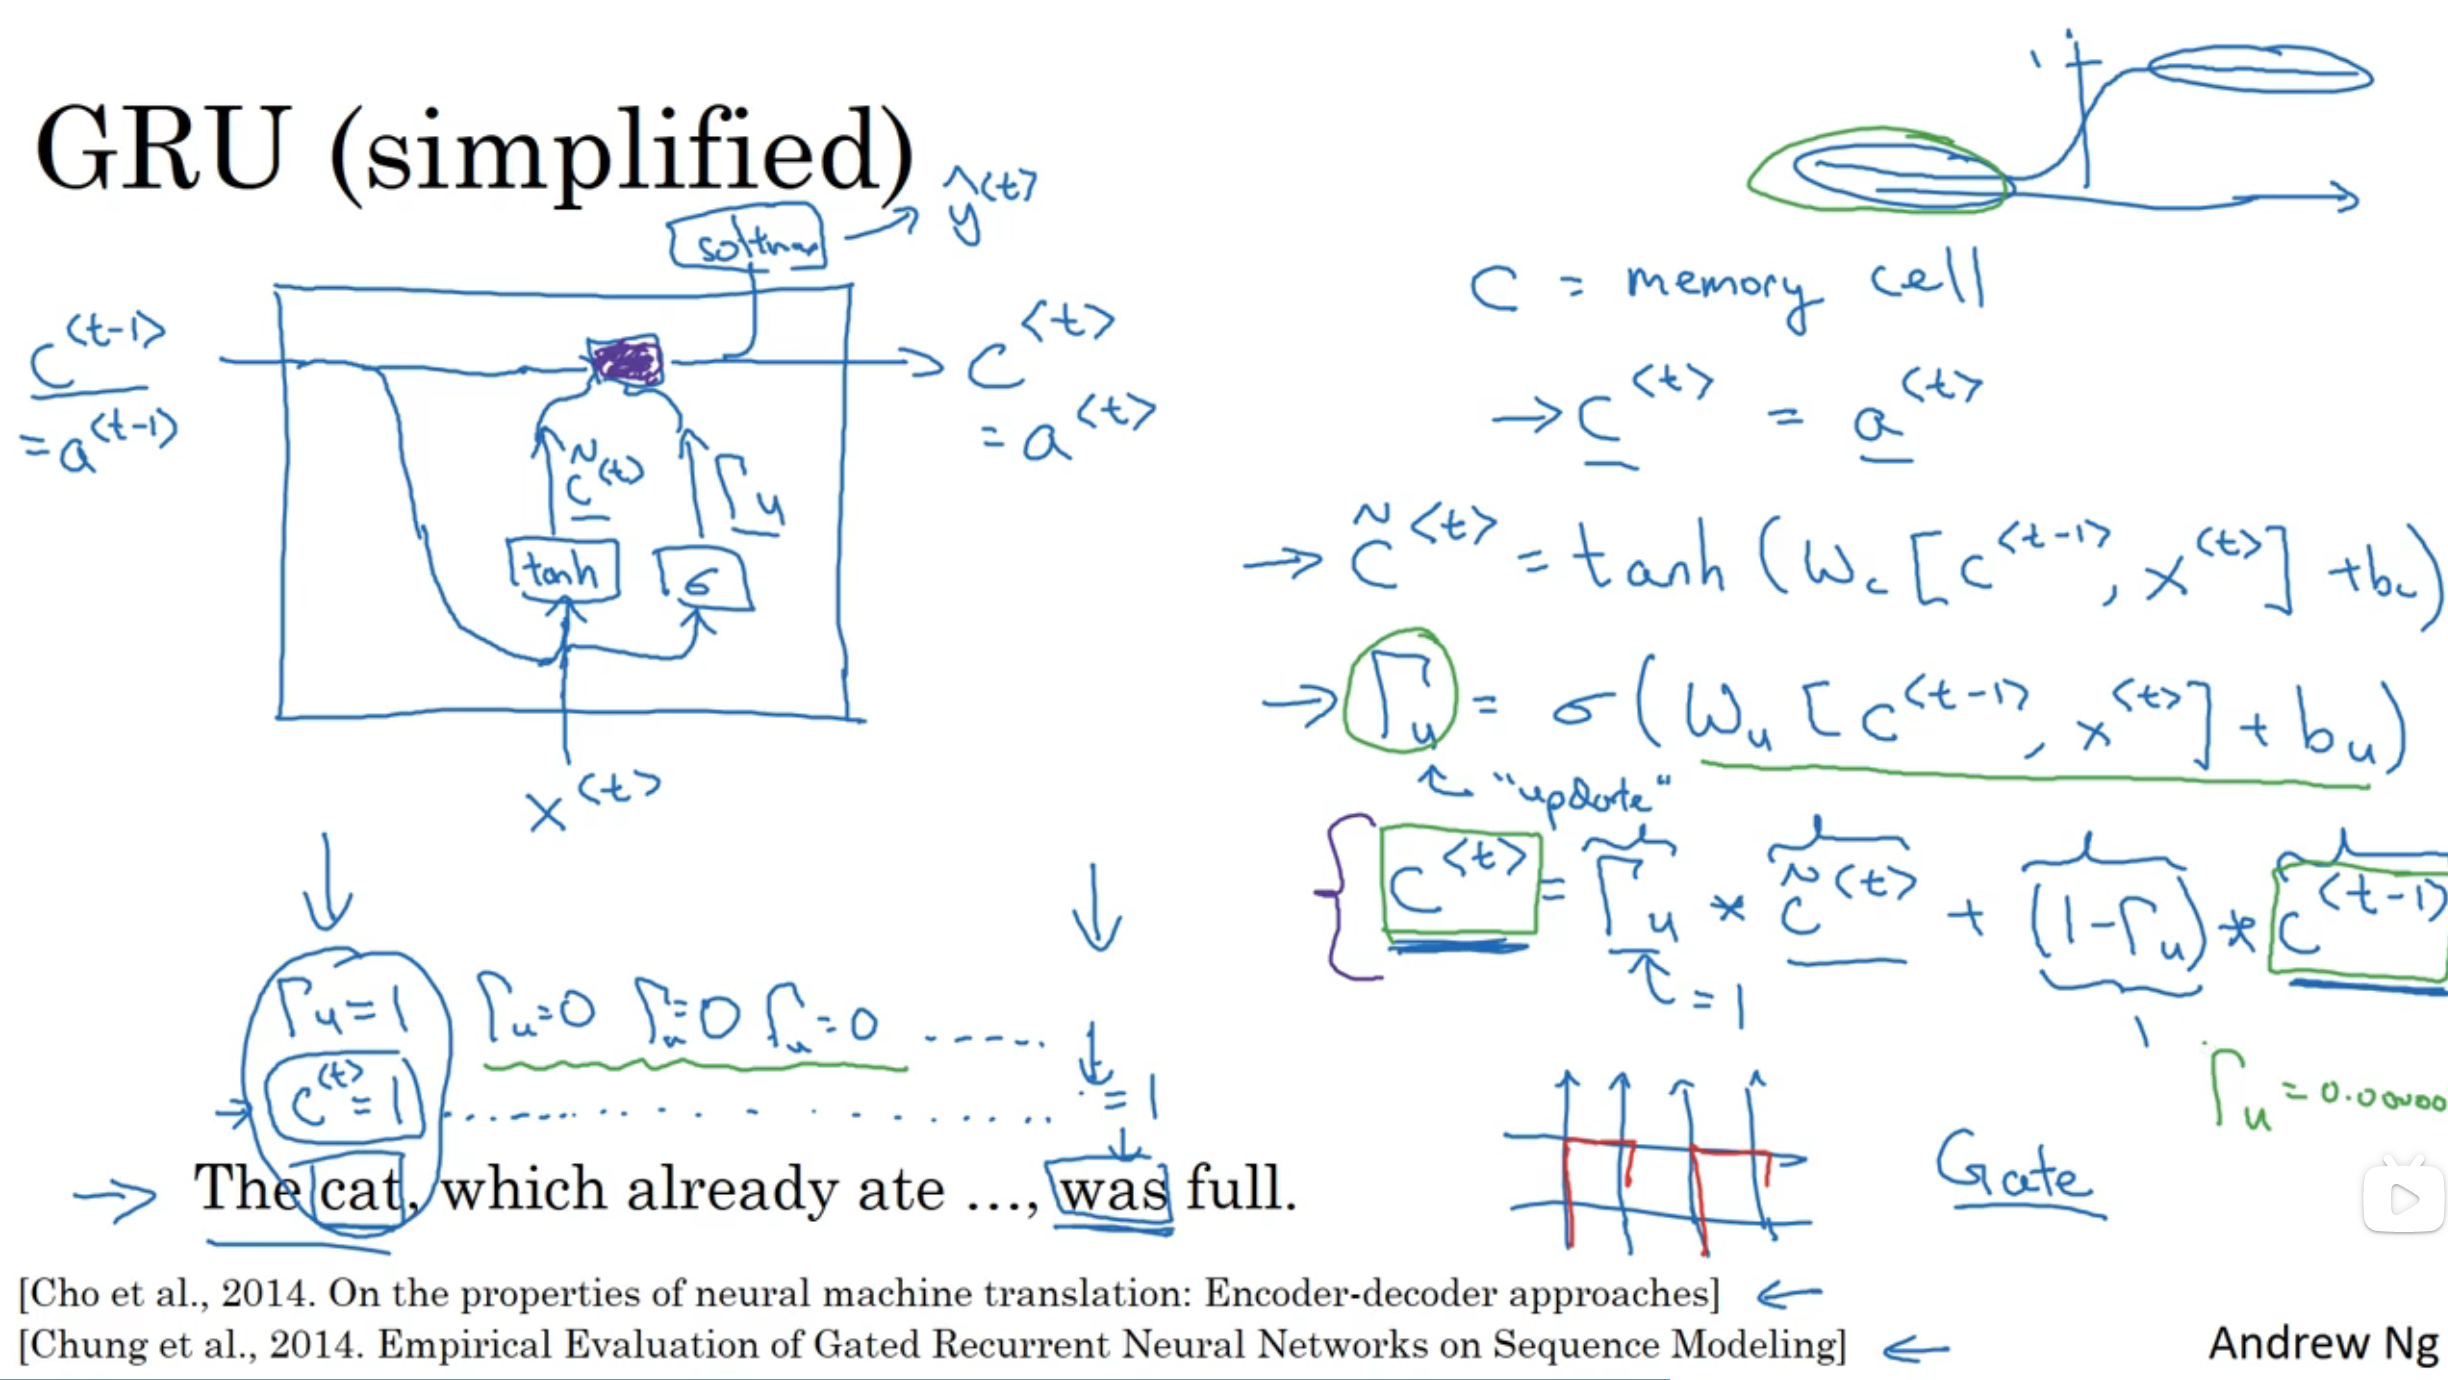 GRU (simplified)
ŷ<t>
softmax
c<t-1>
= a<t-1>
c̃<t>
Γu
tanh
σ
c<t>
= a<t>
x<t>
C = memory cell
→ c<t> = a<t>
→ c̃<t> = tanh (Wc [c<t-1>, x<t>] + bc)
→ Γu = σ (Wu [c<t-1>, x<t>] + bu)
"update"
c<t> = Γu * c̃<t> + (1-Γu) * c<t-1>
= 1
1
Γu = 0.00000
Γu=1 Γu=0 Γu=0 Γu=0 .....
c<t>=1 ............ =1
→ The cat, which already ate ..., was full.
Gate
[Cho et al., 2014. On the properties of neural machine translation: Encoder-decoder approaches] ←
[Chung et al., 2014. Empirical Evaluation of Gated Recurrent Neural Networks on Sequence Modeling] ←
Andrew Ng